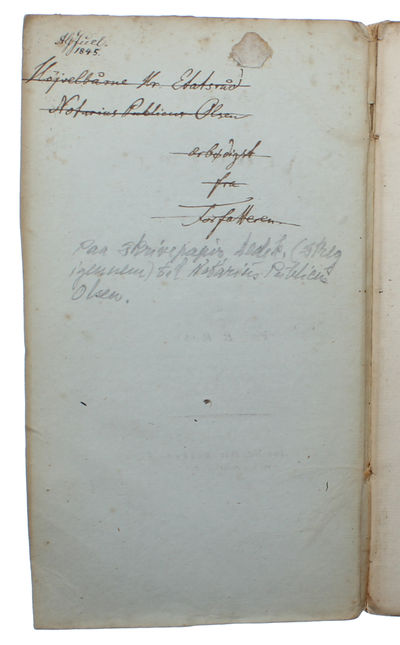 1845.
Højvelbårne Hr. Etatsråd
Notarius Publicus Olsen
ærbødigst
fra
Forfatteren.
Paa Skrivepapir, Dedik. (Streg
igennem) til Notarius Publicus
Olsen.